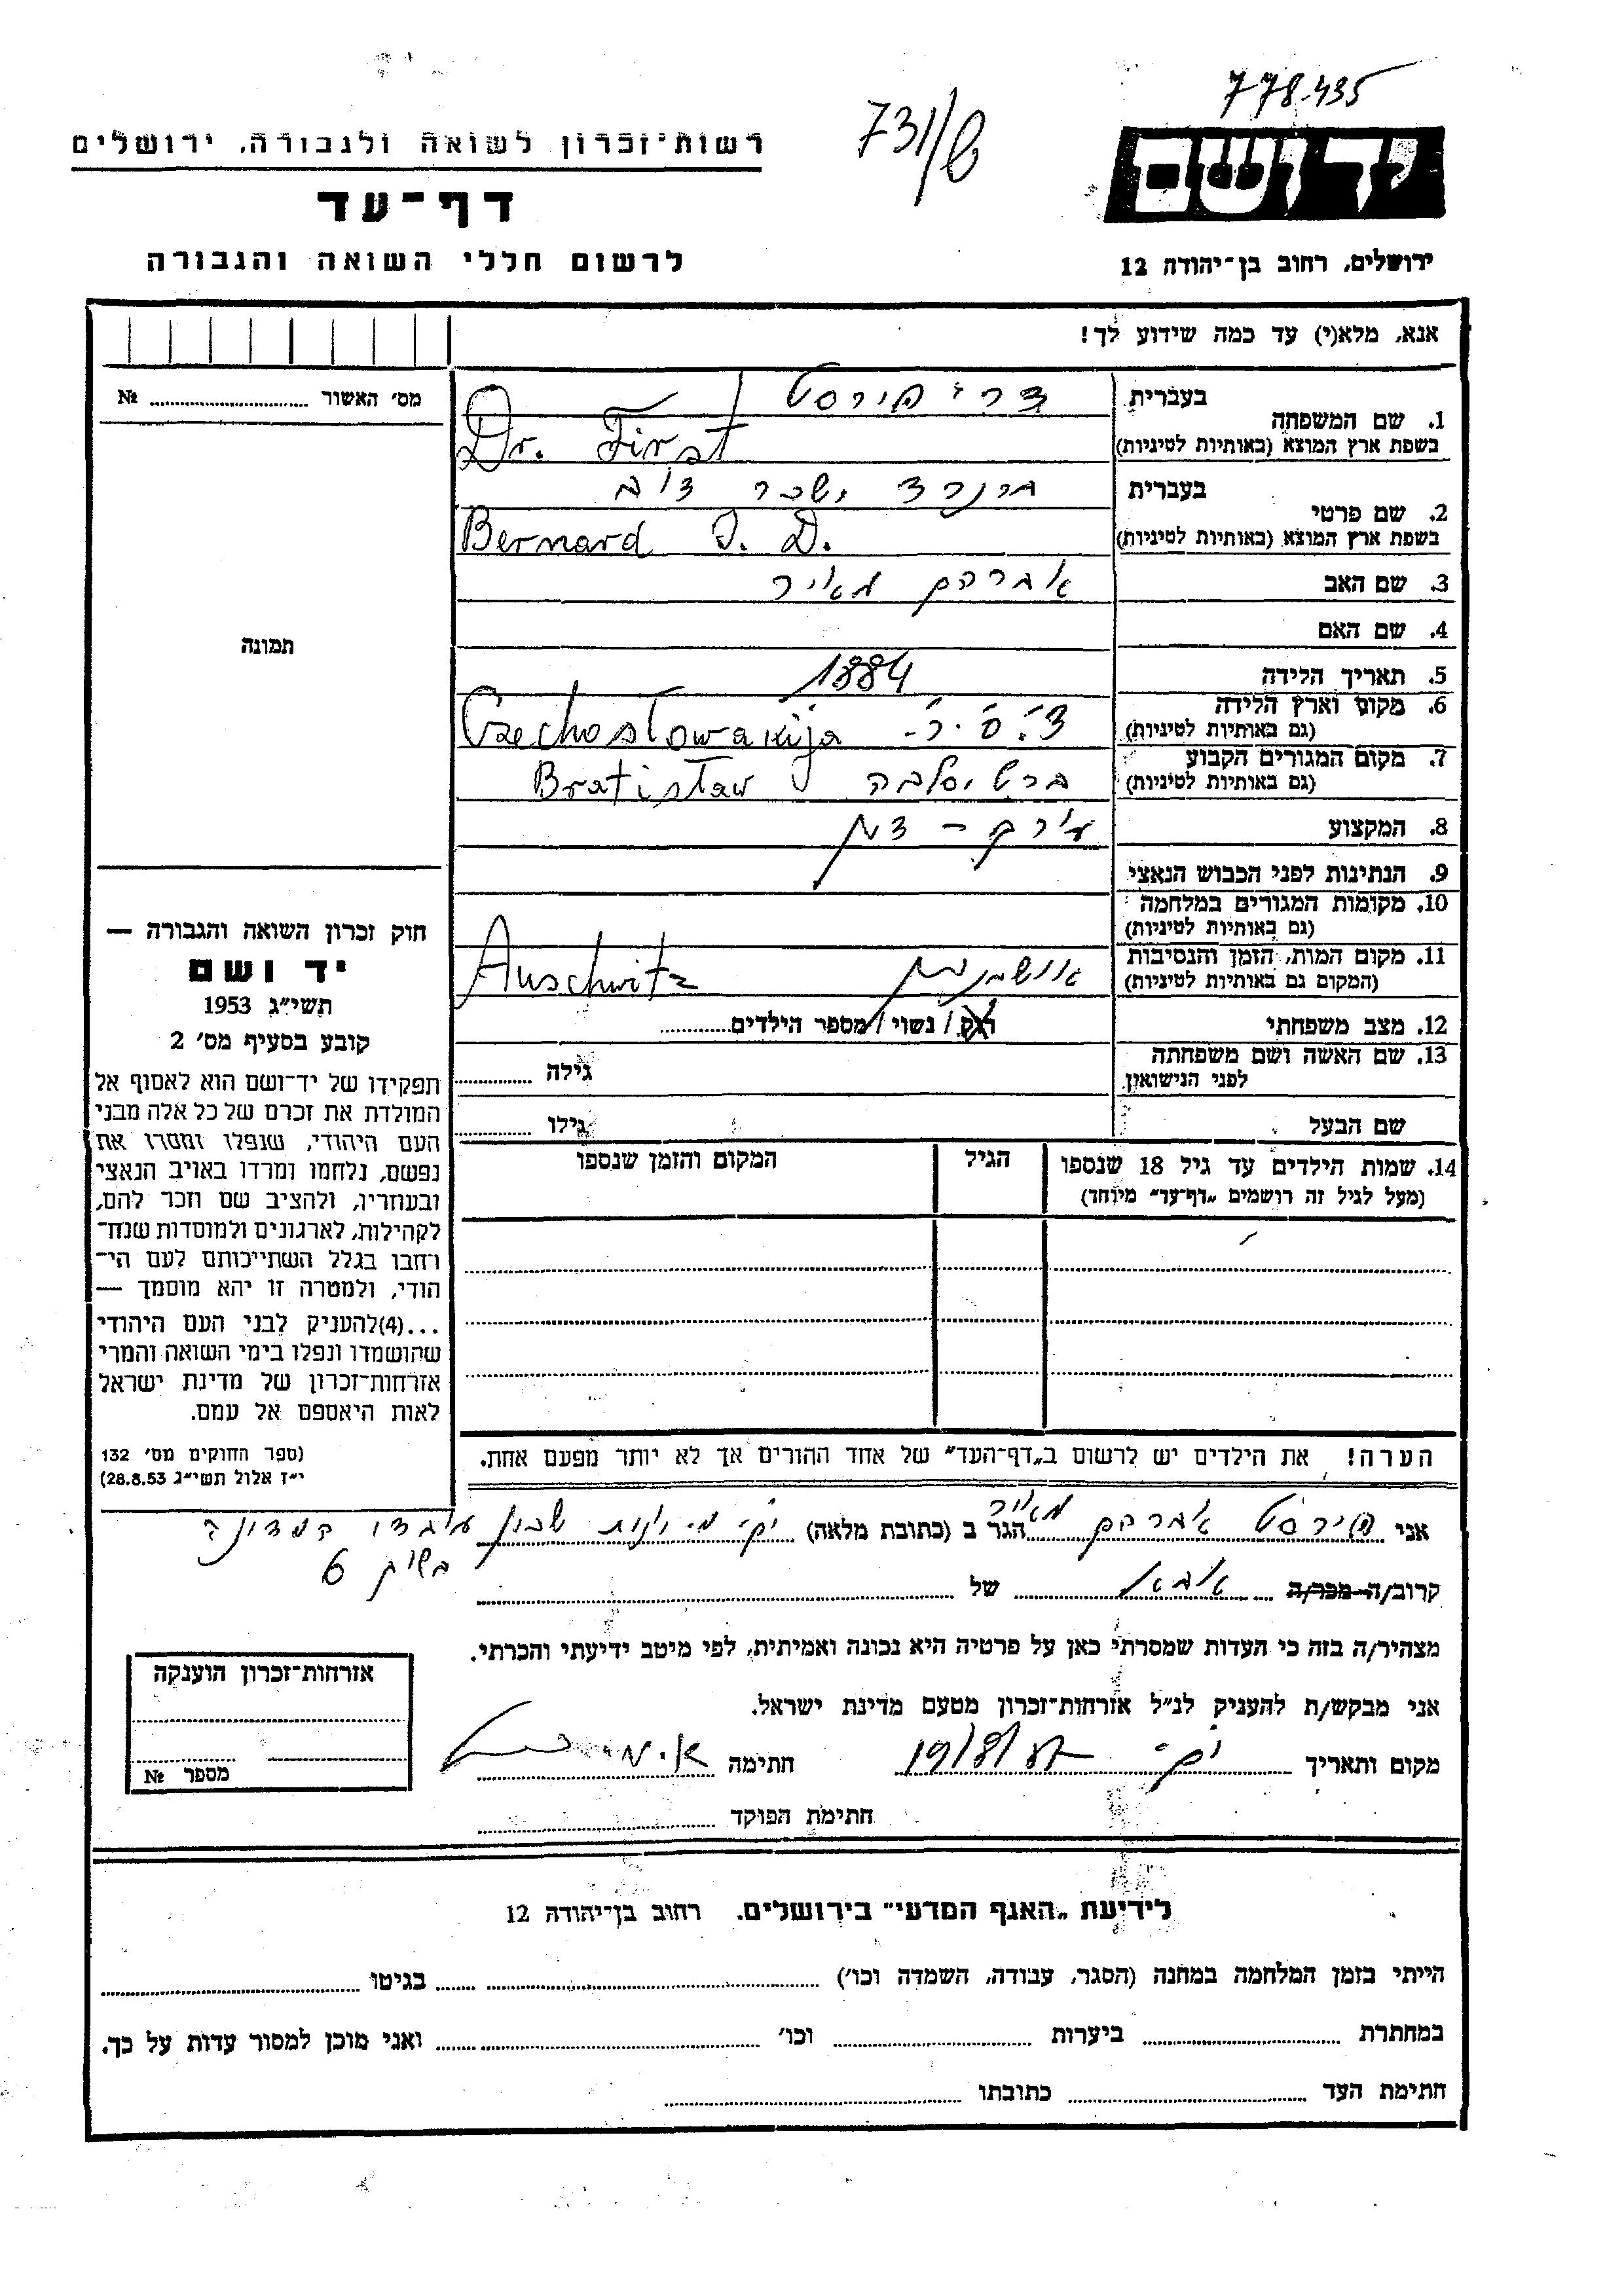 778.435
731/8
יד ושם
ירושלים, רחוב בן־יהודה 12
רשות־זכרון לשואה ולגבורה, ירושלים
דף־עד
לרשום חללי השואה והגבורה
אנא, מלא(י) עד כמה שידוע לך!
מס׳ האשור № 
תמונה
חוק זכרון השואה והגבורה —
יד ושם
תשי״ג 1953
קובע בסעיף מס׳ 2
תפקידו של יד־ושם הוא לאסוף אל
המולדת את זכרם של כל אלה מבני
העם היהודי, שנפלו ומסרו את
נפשם, נלחמו ומרדו באויב הנאצי
ובעוזריו, ולהציב שם וזכר להם,
לקהילות, לארגונים ולמוסדות שנח־
רחבו בגלל השתייכותם לעם הי־
הודי, ולמטרה זו יהא מוסמך —
...(4)להעניק לבני העם היהודי
שהושמדו ונפלו בימי השואה והמרי
אזרחות־זכרון של מדינת ישראל
לאות היאספם אל עמם.
(ספר החוקים מס׳ 132
י״ז אלול תשי״ג 28.8.53)
בעברית
1. שם המשפחה
בשפת ארץ המוצא (באותיות לטיניות)
ד״ר פירסט
Dr. First
בעברית
2. שם פרטי
בשפת ארץ המוצא (באותיות לטיניות)
ברנרד ישכר דוב
Bernard I. D.
3. שם האב אברהם מאיר
4. שם האם
5. תאריך הלידה 1884
6. מקום וארץ הלידה צ׳.ס.ר. Czechoslowakija
(גם באותיות לטיניות)
7. מקום המגורים הקבוע ברטיסלבה Bratislaw
(גם באותיות לטיניות)
8. המקצוע עורך־דין
9. הנתינות לפני הכבוש הנאצי
10. מקומות המגורים במלחמה
(גם באותיות לטיניות)
11. מקום המות, הזמן והנסיבות Auschwitz
(המקום גם באותיות לטיניות)
12. מצב משפחתי רוק / נשוי / מספר הילדים
13. שם האשה ושם משפחתה גילה
לפני הנישואין
שם הבעל גילו
14. שמות הילדים עד גיל 18 שנספו הגיל המקום והזמן שנספו
(מעל לגיל זה רושמים „דף־עד״ מיוחד)
הערה! את הילדים יש לרשום ב„דף־העד״ של אחד ההורים אך לא יותר מפעם אחת.
אני פירסט אברהם מאיר הגר ב (כתובת מלאה) שכון עובדי המדינה
6
קרוב/ה מכר/ה אבא של
מצהיר/ה בזה כי העדות שמסרתי כאן על פרטיה היא נכונה ואמיתית, לפי מיטב ידיעתי והכרתי.
אני מבקש/ת להעניק לנ״ל אזרחות־זכרון מטעם מדינת ישראל.
מקום ותאריך 19/8/ חתימה
חתימת הפוקד
אזרחות־זכרון הוענקה
מספר №
לידיעת „האגף המדעי״ בירושלים. רחוב בן־יהודה 12
הייתי בזמן המלחמה במחנה (הסגר, עבודה, השמדה וכו׳) בגיטו
במחתרת ביערות וכו׳ ואני מוכן למסור עדות על כך.
חתימת העד כתובתו